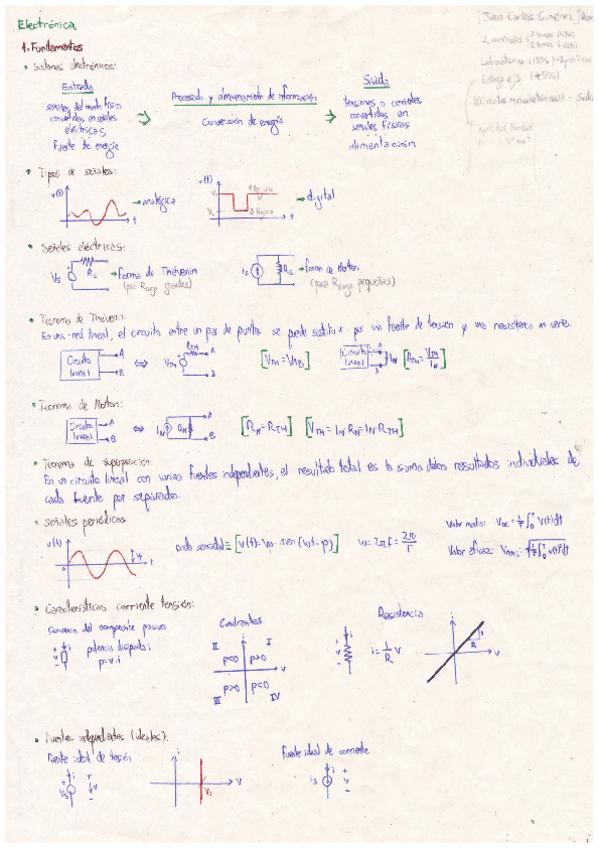 Electrónica
[Juan Carlos Giménez]
1. Fundamentos
2 controles
Laboratorio (15%)
• Sistemas electrónicos:
Entrada
Procesado y almacenamiento de información
Salida
señales del mundo físico convertidas en señales eléctricas
Conversión de energía
tensiones o corrientes convertidas en señales físicas
Fuente de energía
alimentación
• Tipos de señales:
v(t) t → analógica
v(t) 1 lógico 0 lógico t → digital
• Señales eléctricas:
Vs Rs → forma de Thévenin
(para Rcarga grandes)
is Rs → forma de Norton
(para Rcarga pequeñas)
• Teorema de Thévenin:
En una red lineal, el circuito entre un par de puntos se puede sustituir por una fuente de tensión y una resistencia en serie.
Circuito lineal A B ⇔ VTH RTH A B [VTH = VAB] Circuito lineal A B IN [RTH = VTH/IN]
• Teorema de Norton:
Circuito lineal A B ⇔ IN RN A B [RN = RTH] [VTH = IN·RN = IN·RTH]
• Teorema de superposición:
En un circuito lineal con varias fuentes independientes, el resultado total es la suma de los resultados individuales de
cada fuente por separado.
• Señales periódicas
v(t) t onda senoidal = [v(t) = Vp · sen(ωt - φ)] ω = 2πf = 2π/T
Valor medio: VDC = 1/T ∫₀ᵀ v(t)dt
Valor eficaz: Vrms = √(1/T ∫₀ᵀ v²(t)dt)
• Características corriente tensión:
Convenio del componente pasivo
potencia disipada:
p = v·i
Cuadrantes
II I
p<0 p>0
p>0 p<0
III IV
Resistencia
i = 1/R v
• Fuentes independientes (ideales):
Fuente ideal de tensión
Vs i v
Fuente ideal de corriente
is i v